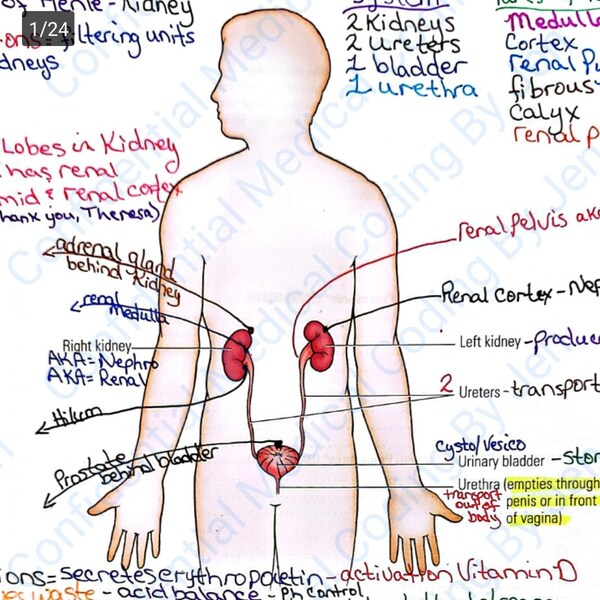 of Henle - Kidney
1/24
ons= filtering units
dneys
System
2 Kidneys
2 Ureters
1 bladder
1 urethra
Medulla
Cortex
renal Pu
fibrous
Calyx
renal p
Lobes in Kidney
has renal
mid & renal cortex
hank you, Theresa)
adrenal gland
behind Kidney
renal
medulla
Right kidney
AKA= Nephro
AKA= Renal
Hilum
Prostate
behind bladder
renal pelvis aka
Renal Cortex - Nep
Left kidney - produce
2 Ureters - transport
cysto/vesico
Urinary bladder - stor
Urethra (empties through
penis or in front
of vagina)
transport
out of
body
ons= secretes erythropoietin - activation Vitamin D
es waste - acid balance - Ph control,
Confidential Medical Coding By Jen